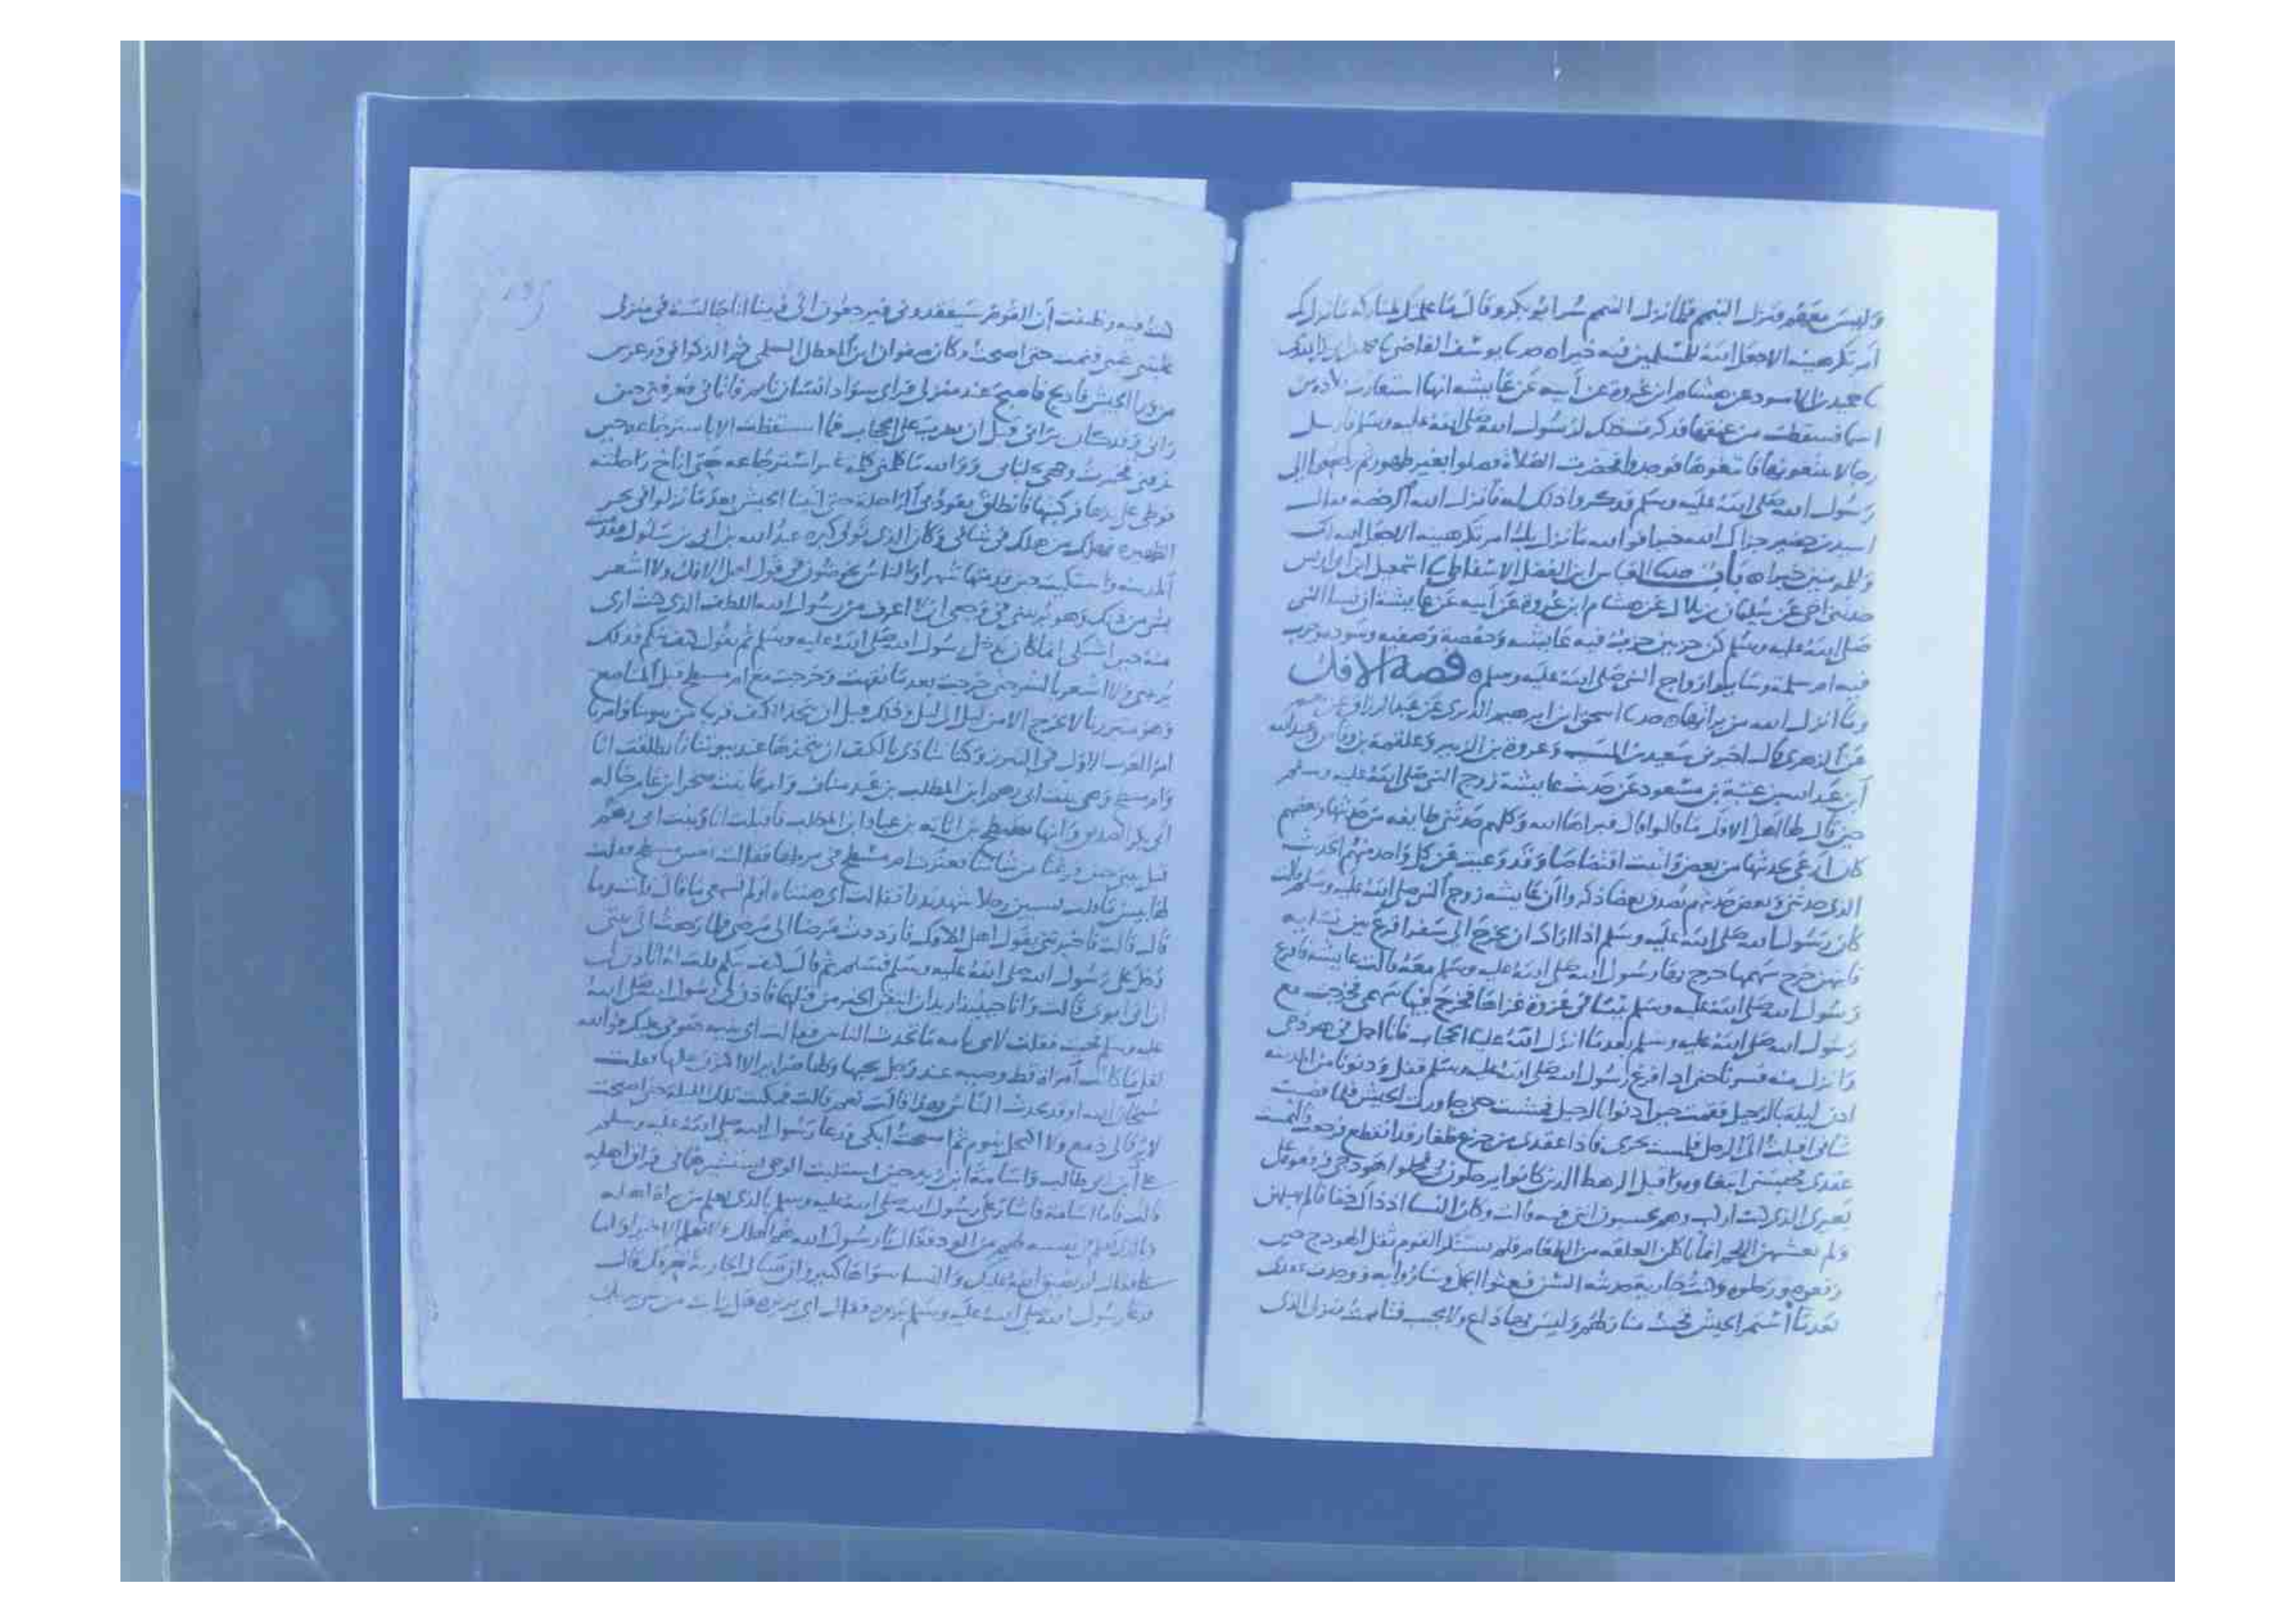 وليس معهم فنزل التيمم فلما نزل التيمم سر ابو بكر وقال ما علمتك لمباركة ما نزل بك
امر تكرهينه الا جعل الله للمسلمين فيه خيرا ه يوسف القاضي
عن هشام ابن عروة عن أبيه عن عايشة انها استعارت قلادة من
اسما فسقطت من عنقها فذكرت ذلك لرسول الله صلى الله عليه وسلم فارسل
رجالا يبتغونها فابتغوها فوجدوها فحضرت الصلاة وصلوا بغير طهور ثم رجعوا الى
رسول الله صلى الله عليه وسلم فذكروا ذلك له فأنزل الله الرخصة فقال
اسيد بن حضير جزاك الله خيرا فوالله ما نزل بك امر تكرهينه الا جعل الله لك
وللمومنين خيرا ه باب العباس ابن الفضل الاسفاطي اسمعيل ابن ابي اويس
حدثني اخي عن سليمان بن بلال عن هشام ابن عروة عن أبيه عن عايشة ان نسا النبي
صلى الله عليه وسلم كن حزبين حزب فيه عايشه وحفصة وصفيه وسوده وحزب
فيه ام سلمة وساير ازواج النبي صلى الله عليه وسلم ه قصة الافك
وما انزل الله من براتها ه اسحق ابن ابرهيم الدبري عن عبد الرزاق عن معمر
عن الزهري قال اخبرني سعيد بن المسيب وعروة بن الزبير وعلقمة بن وقاص وعبيد الله
ابن عبد الله بن عتبة بن مسعود عن حديث عايشة زوج النبي صلى الله عليه وسلم
حين قال لها اهل الافك ما قالوا قال فبراها الله وكلهم حدثني طايفه من حديثها وبعضهم
كان اوعى لحديثها من بعض واثبت اقتصاصا وقد وعيت عن كل واحد منهم الحديث
الذي حدثني وبعض حديثهم يصدق بعضا ذكروا ان عايشه زوج النبي صلى الله عليه وسلم قالت
كان رسول الله صلى الله عليه وسلم اذا اراد ان يخرج الى سفر اقرع بين نسايه
فايتهن خرج سهمها خرج بها رسول الله صلى الله عليه وسلم معه قالت عايشه فاقرع
رسول الله صلى الله عليه وسلم بيننا في غزوة غزاها فخرج فيها سهمي فخرجت مع
رسول الله صلى الله عليه وسلم بعدما انزل الله علينا الحجاب فانا احمل في هودجي
وانزل منه فسرنا حتى اذا فرغ رسول الله صلى الله عليه وسلم قفل ودنونا من المدينه
اذن ليلة بالرحيل فقمت حين اذنوا بالرحيل فمشيت حتى جاوزت الجيش فلما قضيت
شاني اقبلت الى الرحل فلمست نحري فاذا عقدي من جزع ظفار قد انقطع فرجعت فالتمست
عقدي فحبسني ابتغاوه واقبل الرهط الذين كانوا يرحلون بي فحملوا هودجي فرحلوه على
بعيري الذي كنت اركب وهم يحسبون اني فيه قالت وكان النسا اذ ذاك خفافا لم يهبلن
ولم يغشهن اللحم انما ياكلن العلقه من الطعام فلم يستنكر القوم ثقل الهودج حين
رفعوه ورحلوه وكنت جارية حديثه السن فبعثوا الجمل وساروا به ووجدت عقدي
بعدما استمر الجيش فجيت منازلهم وليس بها داع ولا مجيب فتيممت منزلي الذي
كنت فيه وظننت أن القوم سيفقدوني فيرجعون الى فبينا انا جالسة في منزلي
غلبتني عيني فنمت حتى اصبحت وكان صفوان ابن المعطل السلمي ثم الذكواني قد عرس
من ورا الجيش فادلج فاصبح عند منزلي فراى سواد انسان نايم فاتاني فعرفني حين
راني وقد كان يراني قبل ان يضرب علي الحجاب فما استيقظت الا باسترجاعه حين
عرفني فخمرت وجهي بجلبابي ووالله ما كلمني كلمة غير استرجاعه حتى اناخ راحلته
فوطي على يدها فركبتها فانطلق يقود بي الراحلة حتى اتينا الجيش بعدما نزلوا في نحر
الظهيرة فهلك من هلك في شاني وكان الذي تولى كبره عبد الله بن ابي بن سلول فقدمت
المدينه واشتكيت حين قدمتها شهرا والناس يخوضون في قول اهل الافك ولا اشعر
بشي من ذلك وهو يريبني في وجعي اني لا اعرف من رسول الله اللطف الذي كنت ارى
منه حين اشتكي انما كان يدخل رسول الله صلى الله عليه وسلم ثم يقول كيف تيكم فذلك
يريبني ولا اشعر بالشر حتى خرجت بعدما نقهت وخرجت مع ام مسطح قبل المناصع
وهو متبرزنا لا نخرج الا من ليل الى ليل وذلك قبل ان نتخذ الكنف قريبا من بيوتنا وامرنا
امر العرب الاول في التبرز وكنا نتاذى بالكنف ان نتخذها عند بيوتنا فانطلقت انا
وام مسطح وهي بنت ابي رهم ابن المطلب بن عبد مناف وامها بنت صخر ابن عامر خالة
ابي بكر الصديق وابنها مسطح بن اثاثه بن عباد ابن المطلب فاقبلت انا وبنت ابي رهم
قبل بيتي حين فرغنا من شاننا فعثرت ام مسطح في مرطها فقالت تعس مسطح فقلت
لها بيس ما قلت تسبين رجلا شهد بدرا فقالت اي هنتاه اولم تسمعي ما قال قلت وما
قال قالت فاخبرتني بقول اهل الافك فازددت مرضا الى مرضي فلما رجعت الى بيتي
دخل علي رسول الله صلى الله عليه وسلم فسلم ثم قال كيف تيكم قلت اتاذن لي
ان اتي ابوي قالت وانا حينيذ اريد ان اتيقن الخبر من قبلهما فاذن لي رسول الله صلى الله
عليه وسلم فجيت فقلت لامي يا امه ما يتحدث الناس فقالت اي بنيه هوني عليك فوالله
لقل ما كانت امراة قط وضييه عند رجل يحبها ولها ضراير الا اكثرن عليها فقلت
سبحان الله او قد يحدث الناس بهذا قالت نعم قالت فبكيت تلك الليلة حتى اصبحت
لا يرقا لي دمع ولا اكتحل بنوم ثم اصبحت ابكي ودعا رسول الله صلى الله عليه وسلم
علي ابن ابي طالب واسامة ابن زيد حين استلبث الوحي يستشيرهما في فراق اهله
قالت فاما اسامة فاشار على رسول الله صلى الله عليه وسلم بالذي يعلم من براة اهله
وبالذي يعلم في نفسه لهم من الود فقال يا رسول الله هم اهلك ولا نعلم الا خيرا واما
علي فقال لم يضيق الله عليك والنسا سواها كثير وان تسال الجارية تصدقك قالت
فدعا رسول الله صلى الله عليه وسلم بريرة فقال اي بريره هل رايت من شي يريبك